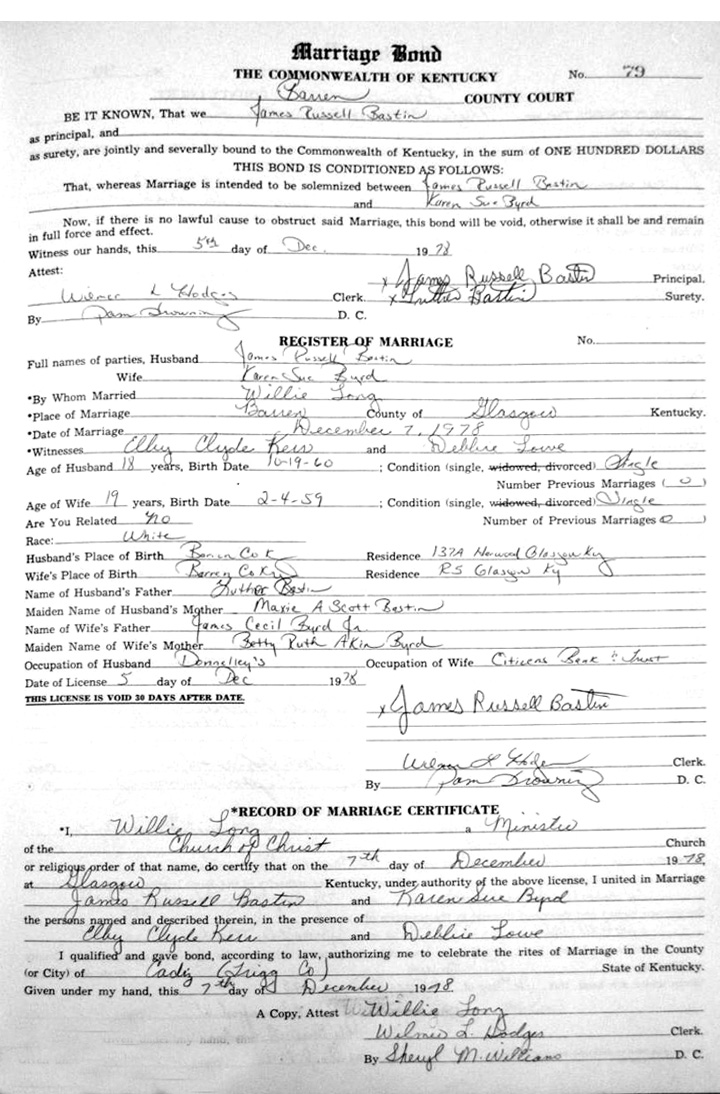 Marriage Bond
THE COMMONWEALTH OF KENTUCKY No. 79
Barren COUNTY COURT
BE IT KNOWN, That we James Russell Bastin
as principal, and
as surety, are jointly and severally bound to the Commonwealth of Kentucky, in the sum of ONE HUNDRED DOLLARS
THIS BOND IS CONDITIONED AS FOLLOWS:
That, whereas Marriage is intended to be solemnized between James Russell Bastin
and Karen Sue Byrd
Now, if there is no lawful cause to obstruct said Marriage, this bond will be void, otherwise it shall be and remain
in full force and effect.
Witness our hands, this 5th day of Dec. 1978
Attest: x James Russell Bastin Principal.
Wilmer L Hodges Clerk. x Luther Bastin Surety.
By Pam Browning D. C.
REGISTER OF MARRIAGE No.
Full names of parties, Husband James Russell Bastin
Wife Karen Sue Byrd
*By Whom Married Willie Long
*Place of Marriage Barren County of Glasgow Kentucky.
*Date of Marriage December 7, 1978
*Witnesses Elby Clyde Kerr and Debbie Lowe
Age of Husband 18 years, Birth Date 10-19-60 ; Condition (single, widowed, divorced) Single
Number Previous Marriages ( 0 )
Age of Wife 19 years, Birth Date 2-4-59 ; Condition (single, widowed, divorced) Single
Are You Related no Number of Previous Marriages 0 )
Race: White
Husband's Place of Birth Barren Co K Residence 137A Glasgow Ky
Wife's Place of Birth Barren Co Ky Residence R5 Glasgow Ky
Name of Husband's Father Luther Bastin
Maiden Name of Husband's Mother Maxie A Scott Bastin
Name of Wife's Father James Cecil Byrd Jr
Maiden Name of Wife's Mother Betty Ruth Akin Byrd
Occupation of Husband Donnelley's Occupation of Wife Citizens Bank & Trust
Date of License 5 day of Dec 1978
THIS LICENSE IS VOID 30 DAYS AFTER DATE.
x James Russell Bastin
Wilmer L Hodges Clerk.
By Pam Browning D. C.
*RECORD OF MARRIAGE CERTIFICATE
*I, Willie Long a Minister
of the Church of Christ Church
or religious order of that name, do certify that on the 7th day of December 1978,
at Glasgow Kentucky, under authority of the above license, I united in Marriage
James Russell Bastin and Karen Sue Byrd
the persons named and described therein, in the presence of
Elby Clyde Kerr and Debbie Lowe
I qualified and gave bond, according to law, authorizing me to celebrate the rites of Marriage in the County
(or City) of Cadiz (Trigg Co) State of Kentucky.
Given under my hand, this 7th day of December 1978
A Copy, Attest Willie Long
Wilmer L. Hodges Clerk.
By Sheryl M. Williams D. C.